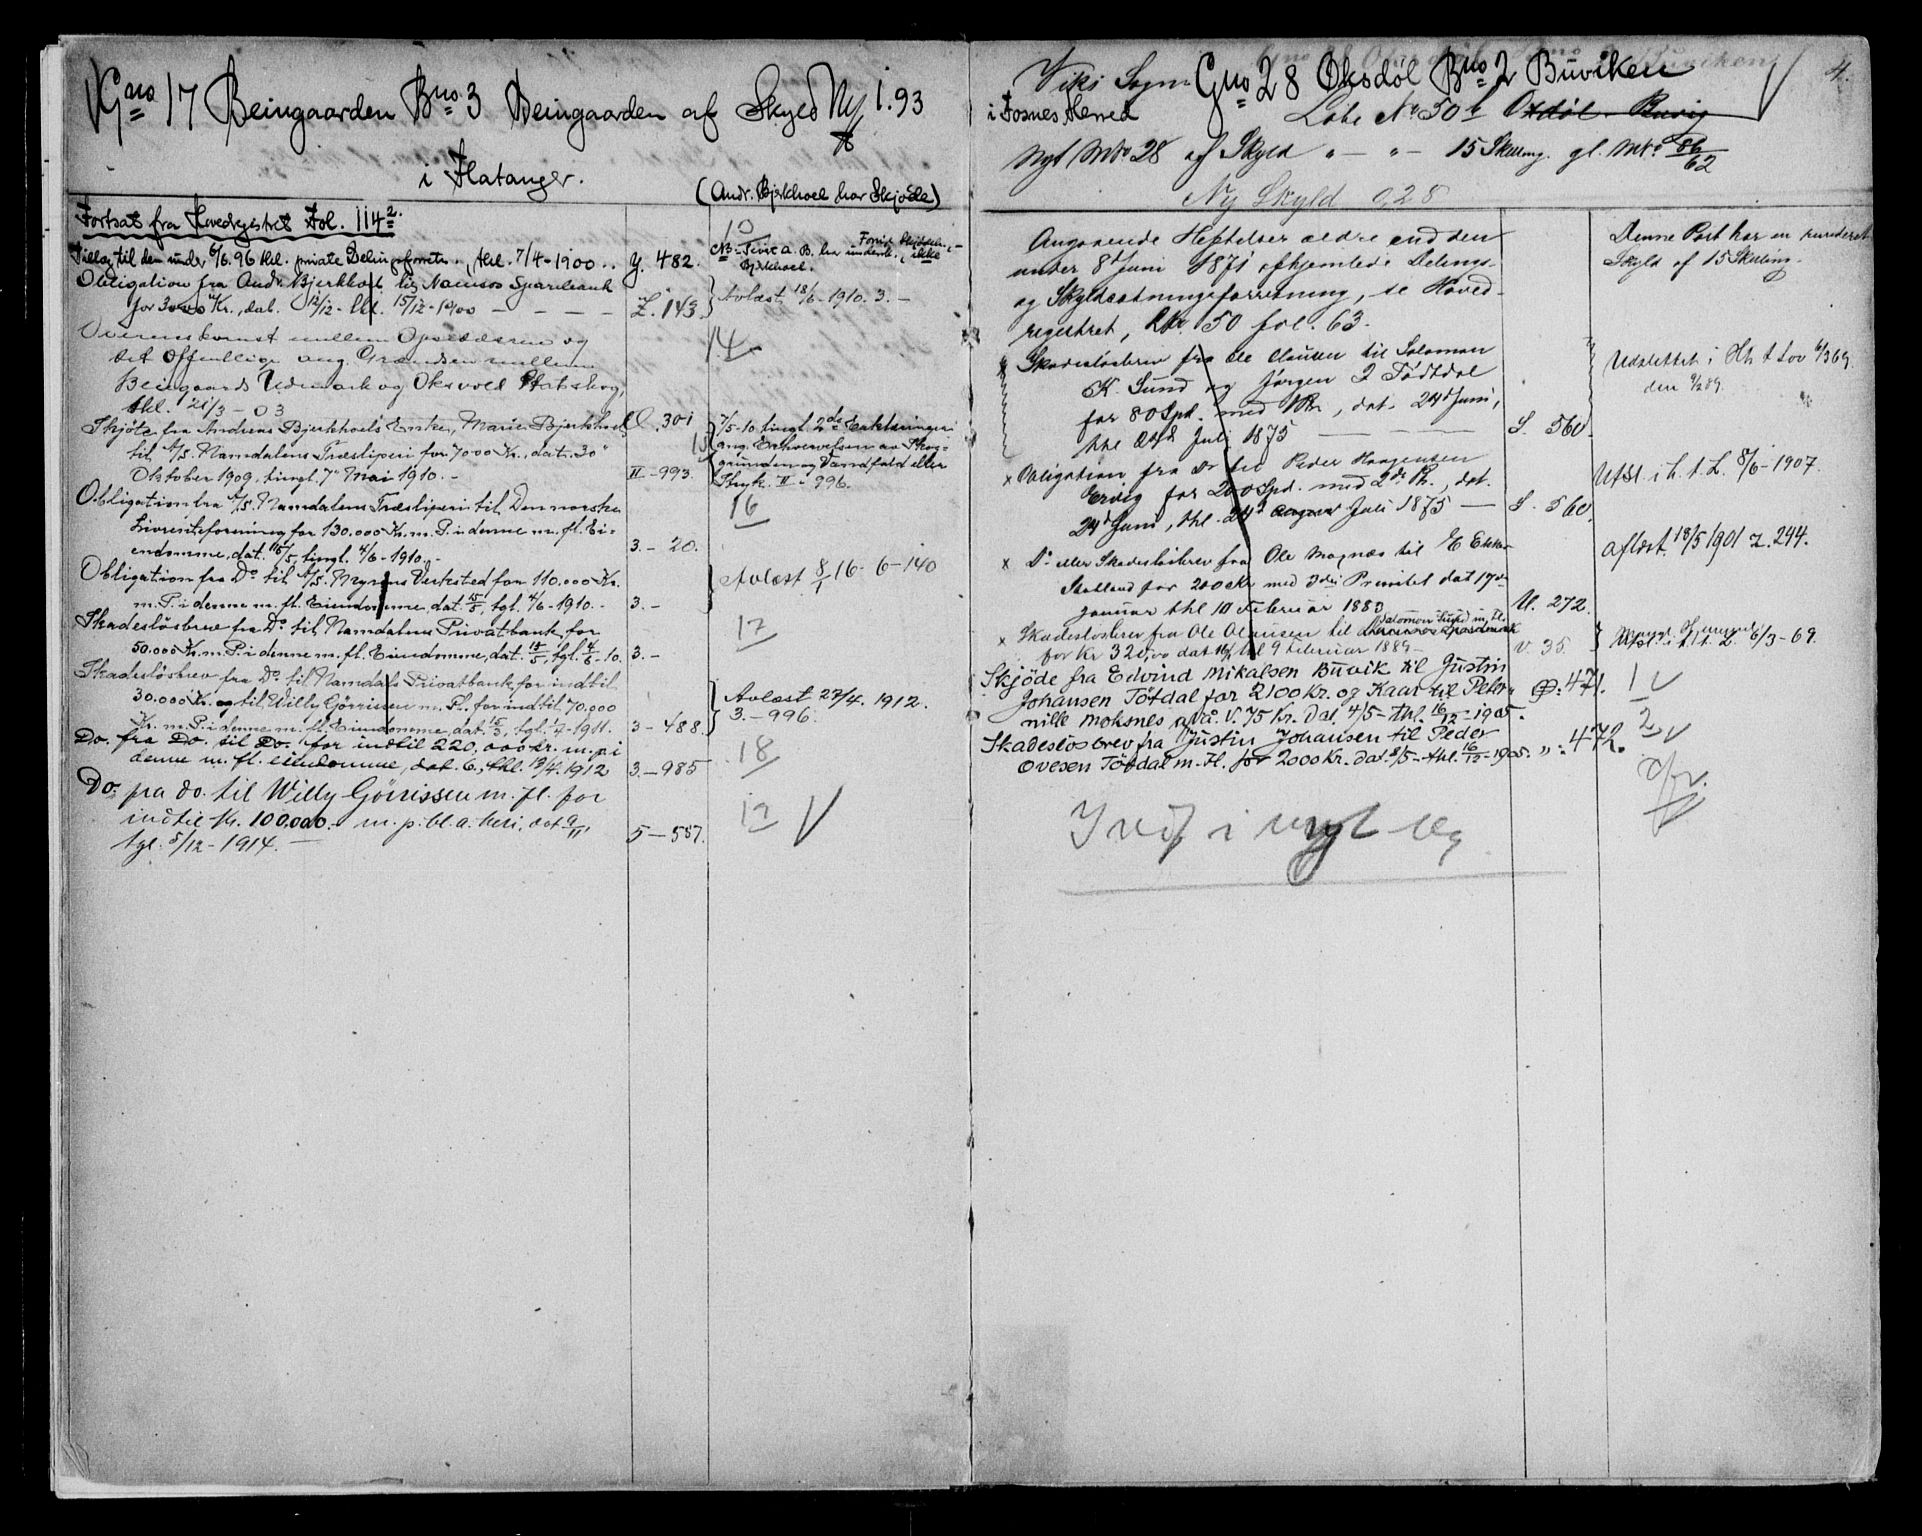 Gno 17 Beingaarden Bno 3 Beingaarden af Skyld Ny 1.93
i Flatanger.
(Andr. Bjerkhoel har Skjøde)
Fortsat fra Hovedregistret Fol. 114 2.
Tillæg til den under 6/6. 96 thl. private Delingsforretn., thl. 7/4-1900.. Y. 482.
10
NB
Obligation fra Andr. Bjerkhoel til Namsos Sparebank
for 3000 Kr., dat. 12/12- thl. 15/12-1900 — — — — Z. 143.
Avlæst 18/6-1910. 3.-
Overenskomst mellem Opsidderne og
det offentlige ang. Grændsen mellem
Beingaards Udmark og Oksvold Statsskog,
thl. 21/3-03
14
Skjøte fra Andreas Bjerkhoels Enke, Marie Bjerkhoel,
til A/S. Namdalens Træsliperi for 7000 Kr., dat. 30
Oktober 1909, tingl. 7 Mai 1910.- II-993.
301
15
7/5-10 tingl. 2de Erklæringer
ang. Erhvervelsen av Skog-
grunden og Vandfald eller
Stryk. II-996.
Obligation fra A/S. Namdalens Træsliperi til Den norske
Livrenteforening for 130.000 Kr. m. P. i denne m. fl. Ei-
endomme, dat. 15/5, tingl. 4/6-1910.- 3.- 20.
16
Obligation fra Do til A/S. Myrens Verksted for 110.000 Kr.
m. P. i denne m. fl. Eiendomme, dat. 15/5, tgl. 4/6-1910.- 3.-
Avlæst 8/1 16-6-140
Skadesløsbrev fra Do. til Namdalens Privatbank for
50.000 Kr. m. P. i denne m. fl. Eiendomme, dat. 15/5, tgl. 4/6-10. 3.-
17
Skadesløsbrev fra Do. til Namdals Privatbank for indtil
30.000 Kr. og til Willy Görrissen m. fl. for indtil 70.000
Kr. m. P. i denne m. fl. Eiendomme, dat. 15/3, tgl. 1/4-1911. 3-488.
Avlæst 27/4. 1912.
3.-996.
Do. fra Do. til Do. for indtil 220,000 kr. m. p. i
denne m. fl. eiendomme, dat. 6., thl. 13/4. 1912 3.-985
18
Do. fra do. til Willy Görrissen m. fl. for
indtil Kr. 100.000.- m. p. bl. a. heri, dat 9/11,
tgl. 5/12-1914.- 5-587.
12
4.
Viks Sogn Gno 28 Oksdøl Bno 2 Buviken
i Fosnes Herred
Løbe No 50 b Oxdøl Buvig
Nyt Mtr 28 af Skyld " - " - 15 Skilling. gl. Mtr. 86/62
Ny Skyld 0,28
Angaaende Heftelser ældre end den
under 8d Juni 1871 afhjemlede Delings-
og Skyldsætningsforretning, se Hoved-
registret, LNr 50 fol. 63.
Denne Part har en
Skyld af 15 Skilling.
Skadesløsbrev fra Ole Olausen til Salomon
K. Sund og Jørgen I Tødtdal
for 80 Spd. med 1 Pr., dat. 24d Juni,
thl 24d Juli 1875 — S. 560.
Udslettet i Hh t Lov 6/3 69
x Obligation fra Do til Peder Haagensen
Ervig for 200 Spd. med 2de Pr., dat.
24d Juni, thl. 24d August Juli 1875 — S. 560.
Udsl. i h. t. L. 8/6-1907.
x Do eller Skadesløsbrev fra Ole Mognæs til E Ekker
Skatland for 200 Kr med 3die Prioritet dat 17de
Januar thl 10 Februar 1883 U. 272.
aflæst. 18/5 1901 Z. 244.
x Skadesløsbrev fra Ole Olausen til Namsos Sparebank Salomon Sund m. fl.
for Kr 320,00 dat thl 9 Februar 1889- V. 35.
6/3-69.
Skjøde fra Edvind Mikalsen Buvik til Justin
Johansen Tøtdal for 2100 kr. og Kaar til Peter-
nille Moksnes a. v. 75 Kr. Dat. 4/5-thl. 16/12-1905. 471.
1
Skadesløsbrev fra Justin Johansen til Peder
Ovesen Tötdal m. fl. for 2000 Kr. dat. 8/5-thl. 16/12-1905. ". 472.
2
Indf i nyt reg